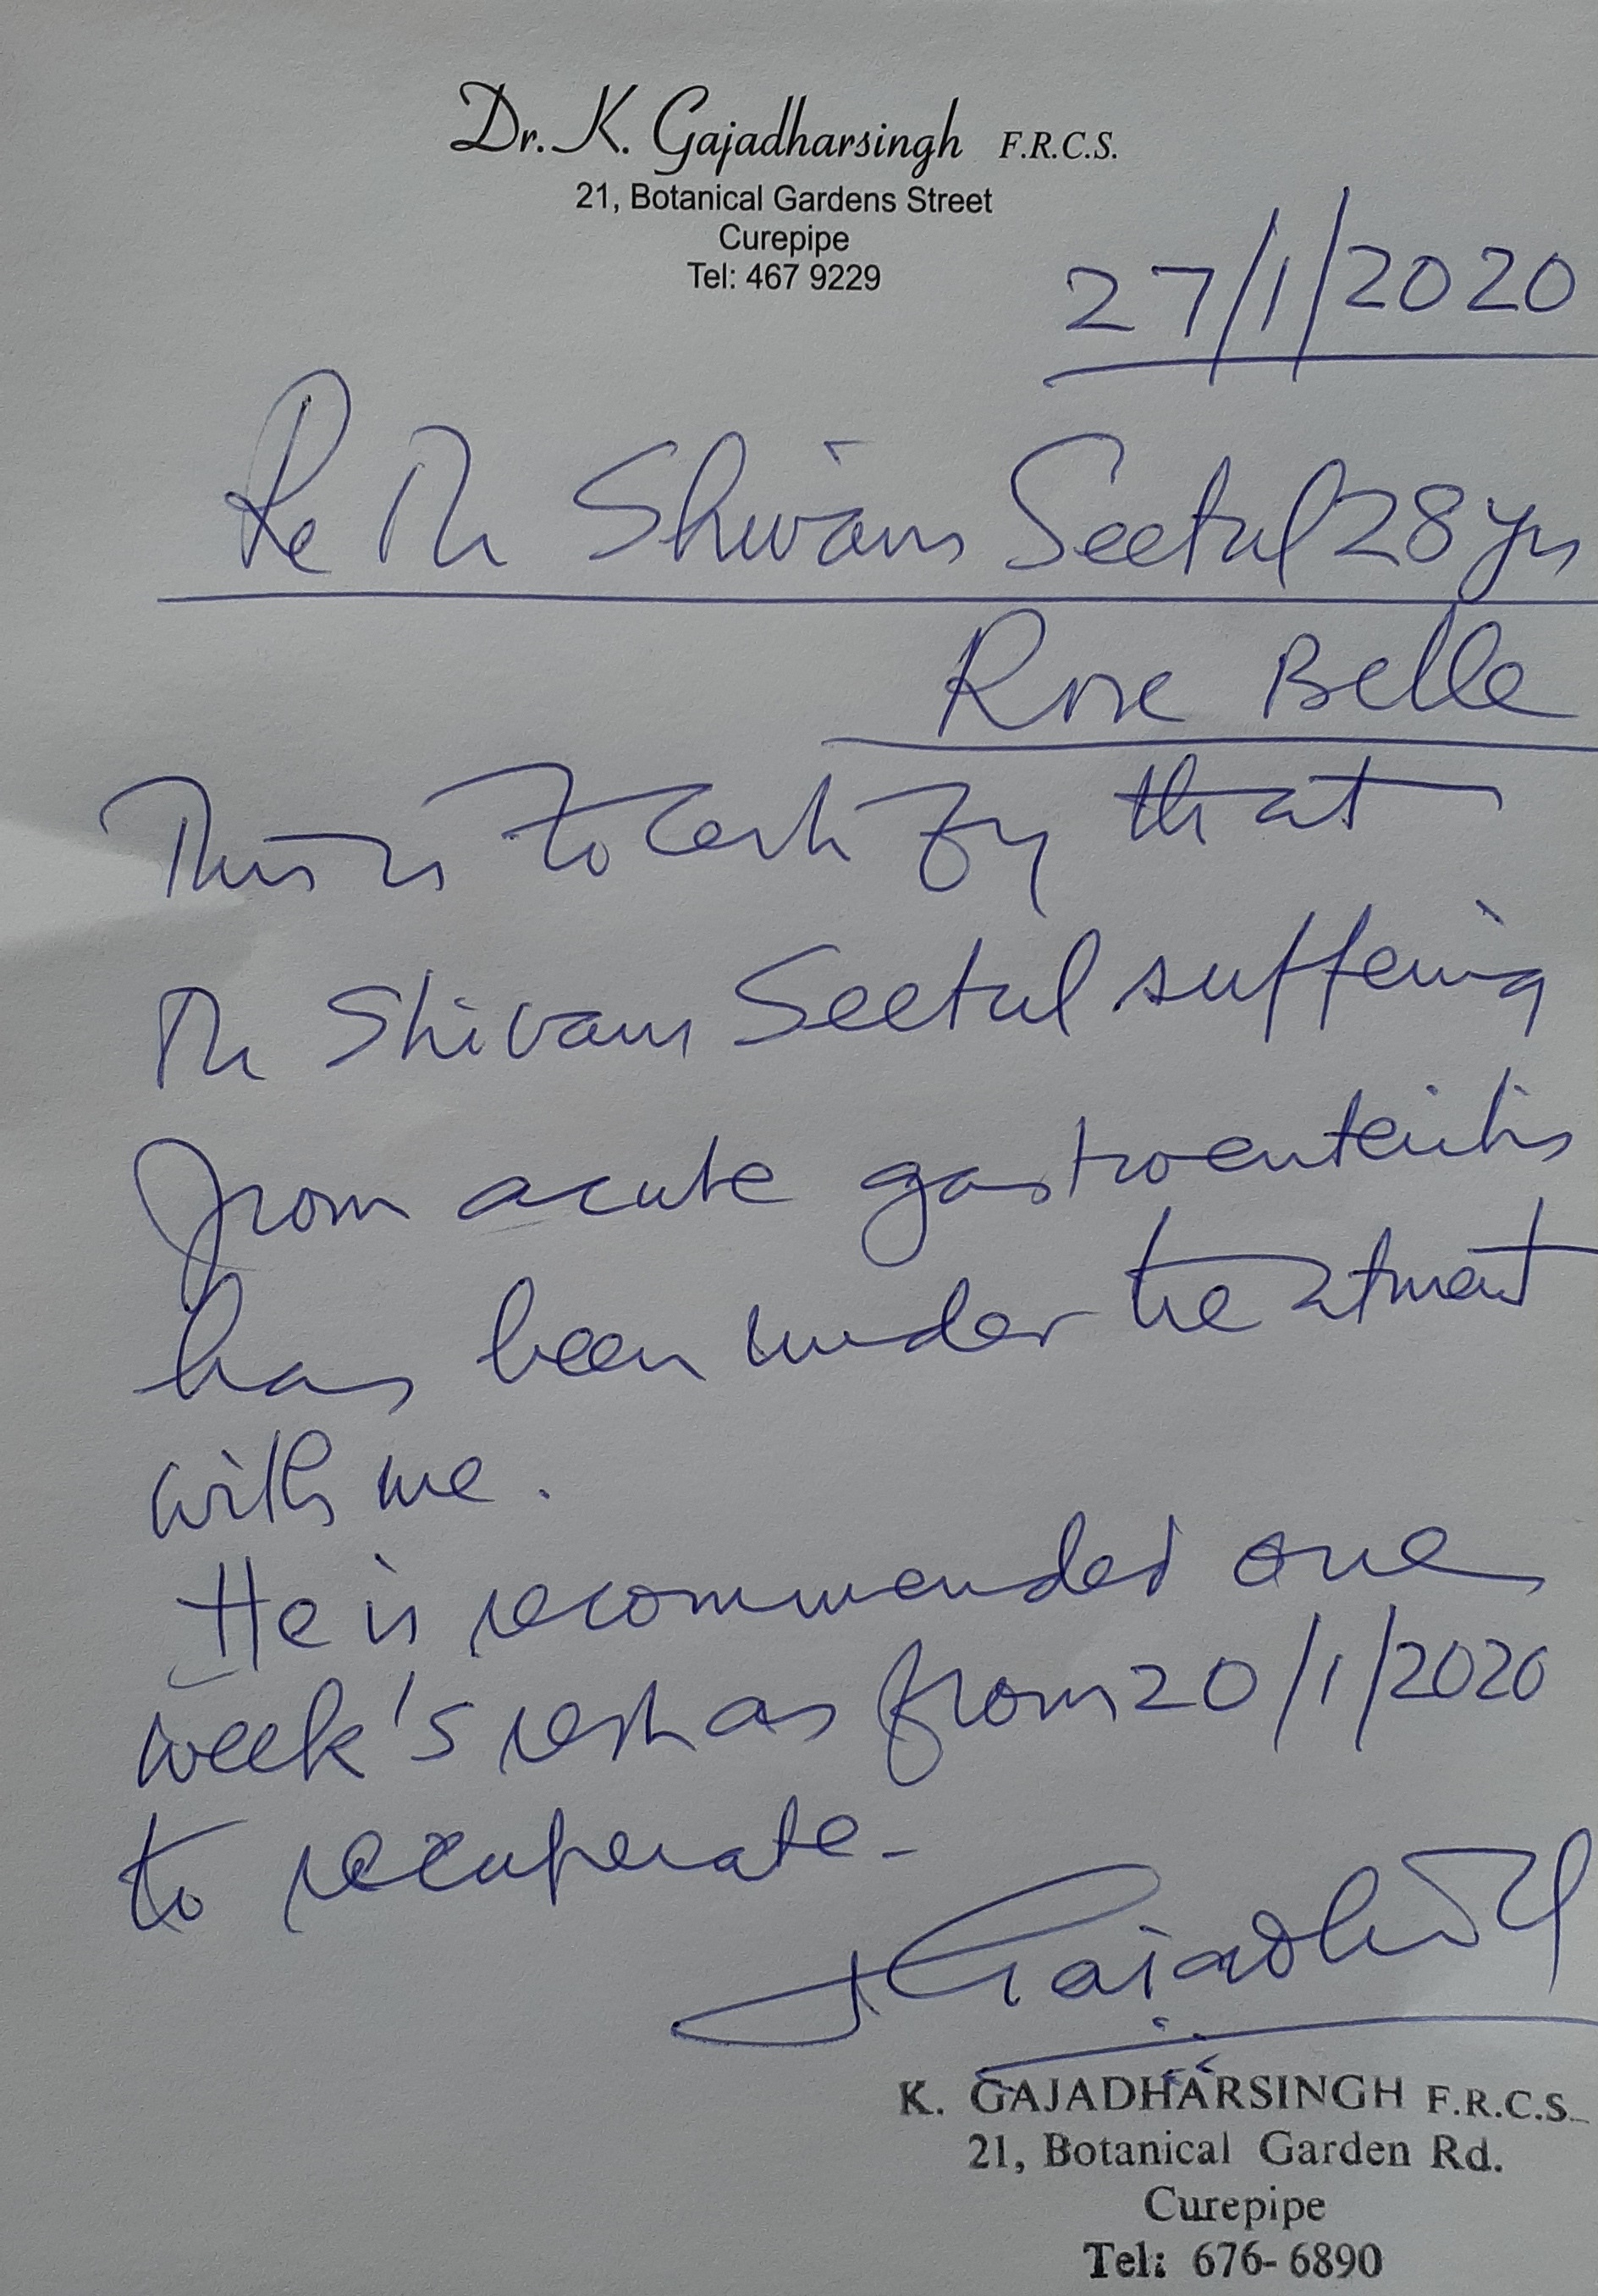 Dr. K. Gajadharsingh F.R.C.S.
21, Botanical Gardens Street
Curepipe
Tel: 467 9229
27/1/2020
Re Mr Shivam Seetul 28 yrs
Rose Belle
This is to certify that
Mr Shivam Seetul suffering
from acute gastroenteritis
has been under treatment
with me.
He is recommended one
week's rest as from 20/1/2020
to recuperate.
K. GAJADHARSINGH F.R.C.S.
21, Botanical Garden Rd.
Curepipe
Tel: 676-6890